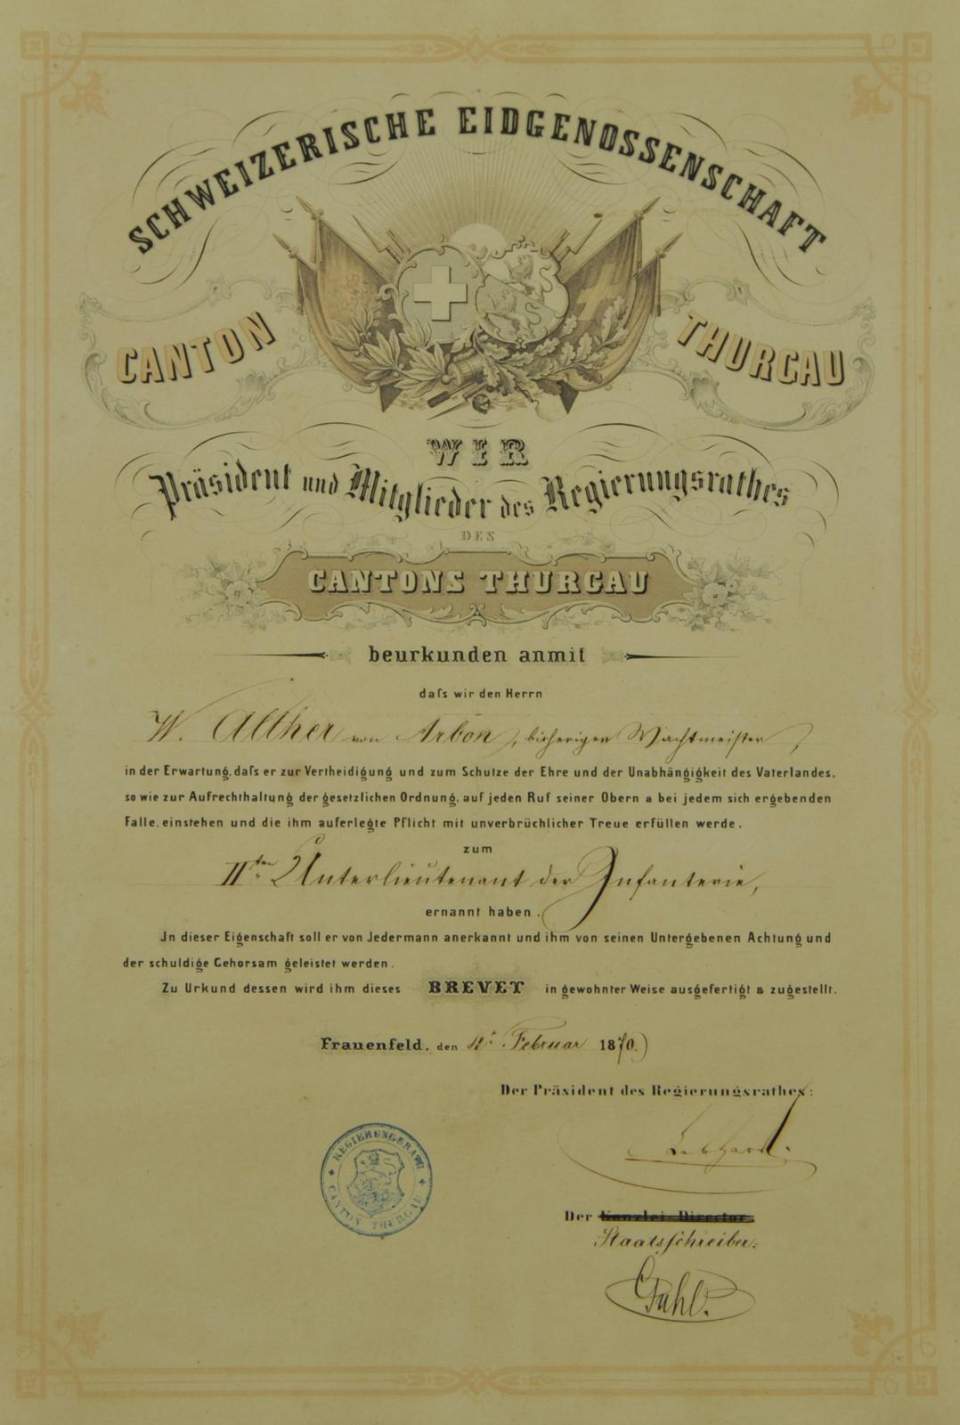 SCHWEIZERISCHE EIDGENOSSENSCHAFT
CANTON THURGAU
WIR
Präsident und Mitglieder des Regierungsrathes
DES
CANTONS THURGAU
beurkunden anmit
daſs wir den Herrn
W. Alther von Arbon, bisherigen Wachtmeister,
in der Erwartung, daſs er zur Vertheidigung und zum Schutze der Ehre und der Unabhängigkeit des Vaterlandes,
so wie zur Aufrechthaltung der gesetzlichen Ordnung, auf jeden Ruf seiner Obern & bei jedem sich ergebenden
Falle, einstehen und die ihm auferlegte Pflicht mit unverbrüchlicher Treue erfüllen werde,
zum
IIten Unterlieutenant der Infanterie,
ernannt haben.
Jn dieser Eigenschaft soll er von Jedermann anerkannt und ihm von seinen Untergebenen Achtung und
der schuldige Gehorsam geleistet werden.
Zu Urkund dessen wird ihm dieses BREVET in gewohnter Weise ausgefertigt & zugestellt.
Frauenfeld, den Februar 1870.
Der Präsident des Regierungsrathes:
REGIERUNGSRATH
CANTON THURGAU
Der Kanzlei-Director.
Staatsschreiber: